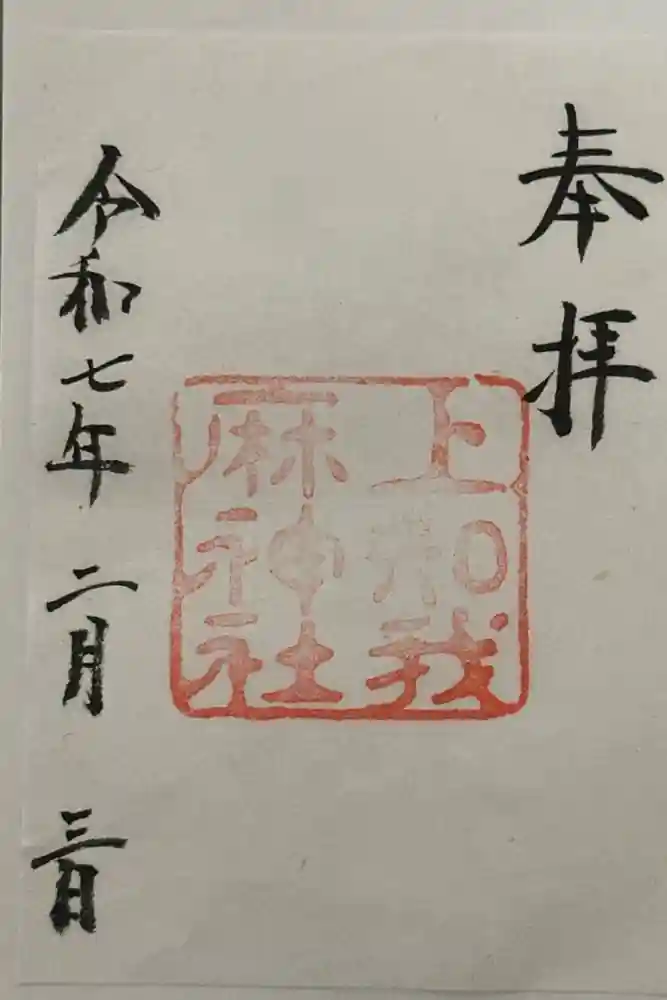 奉拝
上知我
麻神社
令和七年二月三日